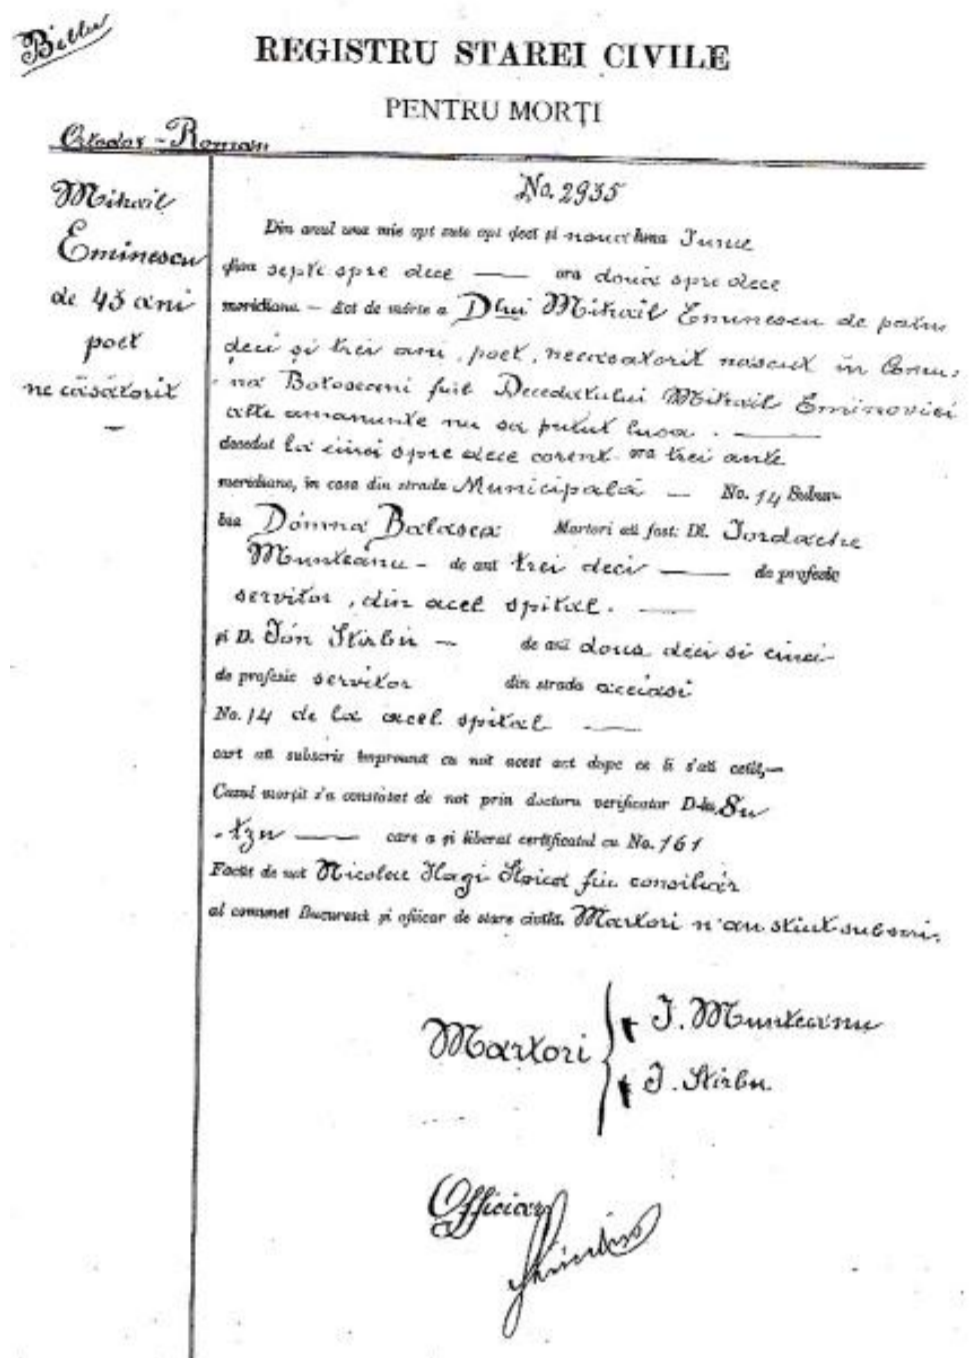 Bellu
REGISTRU STAREI CIVILE
PENTRU MORȚI
Ortodox - Roman
Mihail
Eminescu
de 43 ani
poet
ne căsătorit
No. 2935
Din anul una mie opt sute opt deci și noua luna Junie
diua septe spre dece — ora două spre dece
meridiane — Act de mórte a Dlui Mihail Eminescu de patru
deci și trei ani, poet, necasatorit nascut în Comu-
na Botoseani fiul Decedatului Mihail Eminovici
alte amanunte nu sa putut lua. —
decedat la cinci spre dece corent ora trei ante
meridiane, în casa din strada Municipală — No. 14 Subur-
bia Dómna Balasea Martori aŭ fost: Dl. Iordache
Munteanu - de ani trei deci — de profesie
servitor, din acel spital. —
și D. Ión Stirbu — de ani doua deci si cinci
de profesie servitor din strada aceiasi
No. 14 de la acel spital —
cari aŭ subscris împreună cu noi acest act dupe ce li s'aŭ cetit,—
Cazul morții s'a constatat de noi prin doctoru verificator D-lu Su
- tzu — care a și liberat certificatul cu No. 161
Facut de noi Nicolae Hagi Stoica fiu consiliăr
al comunei Bucuresci și oficiar de stare civilă. Martori n'au stiut subscri.
Martori { J. Munteanu
J. Stirbu.
Officiar